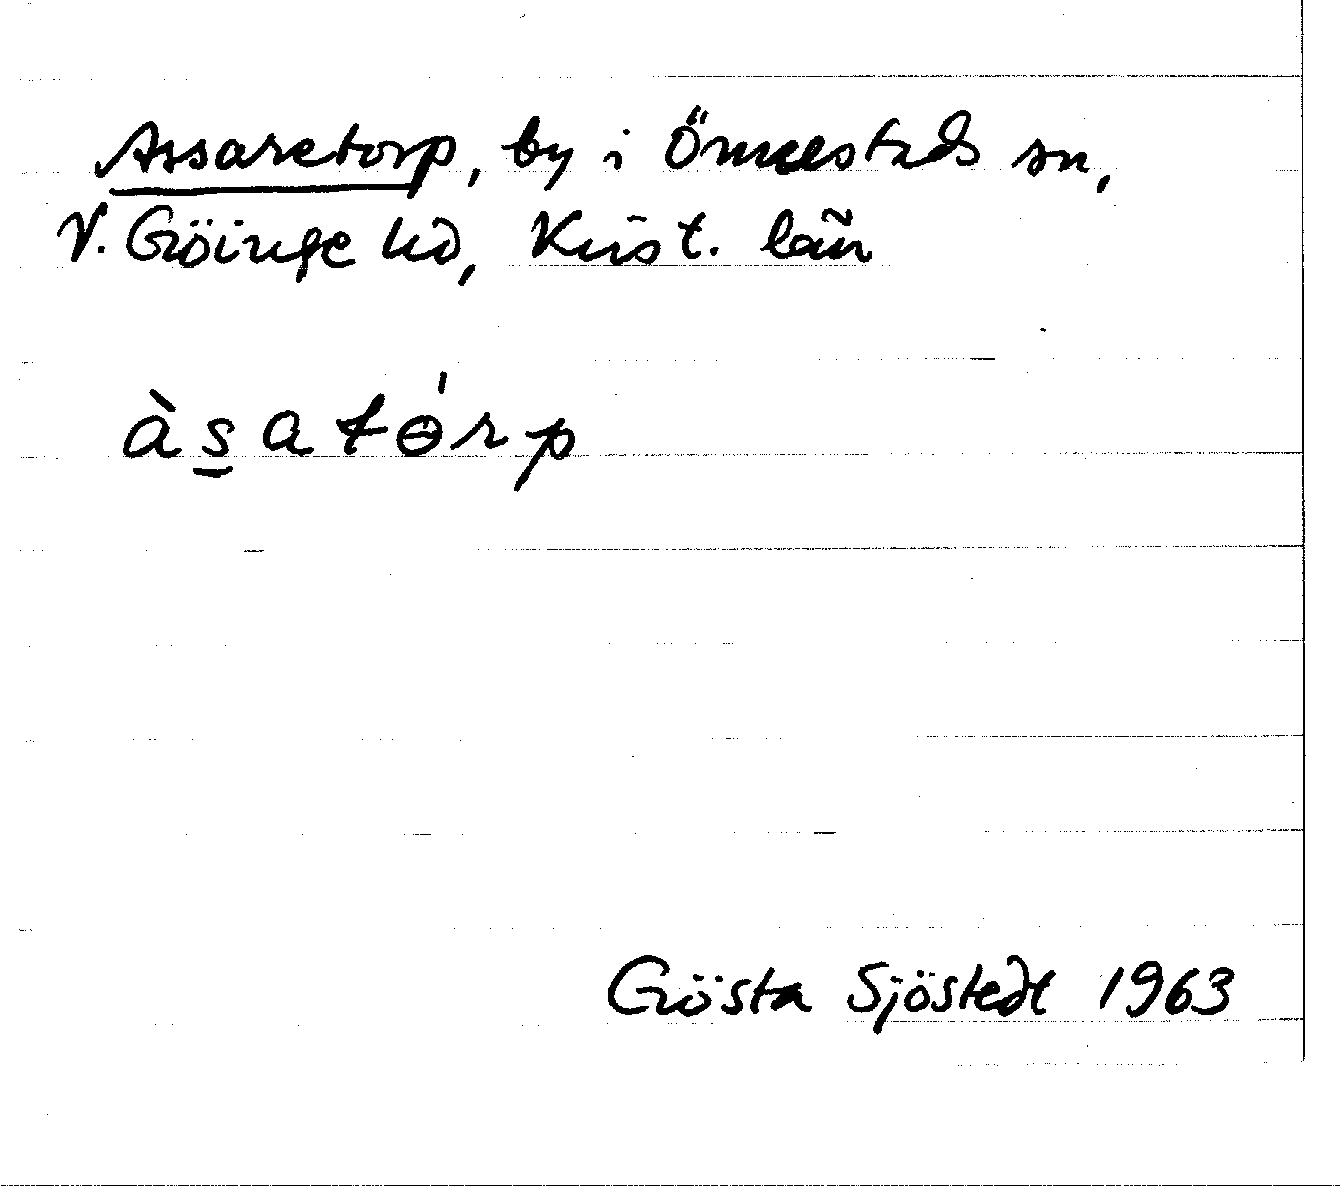 Assaretorp, by i Önnestads sn,
V. Göinge hd, Krist. län
àsatɵ́rp
Gösta Sjöstedt 1963